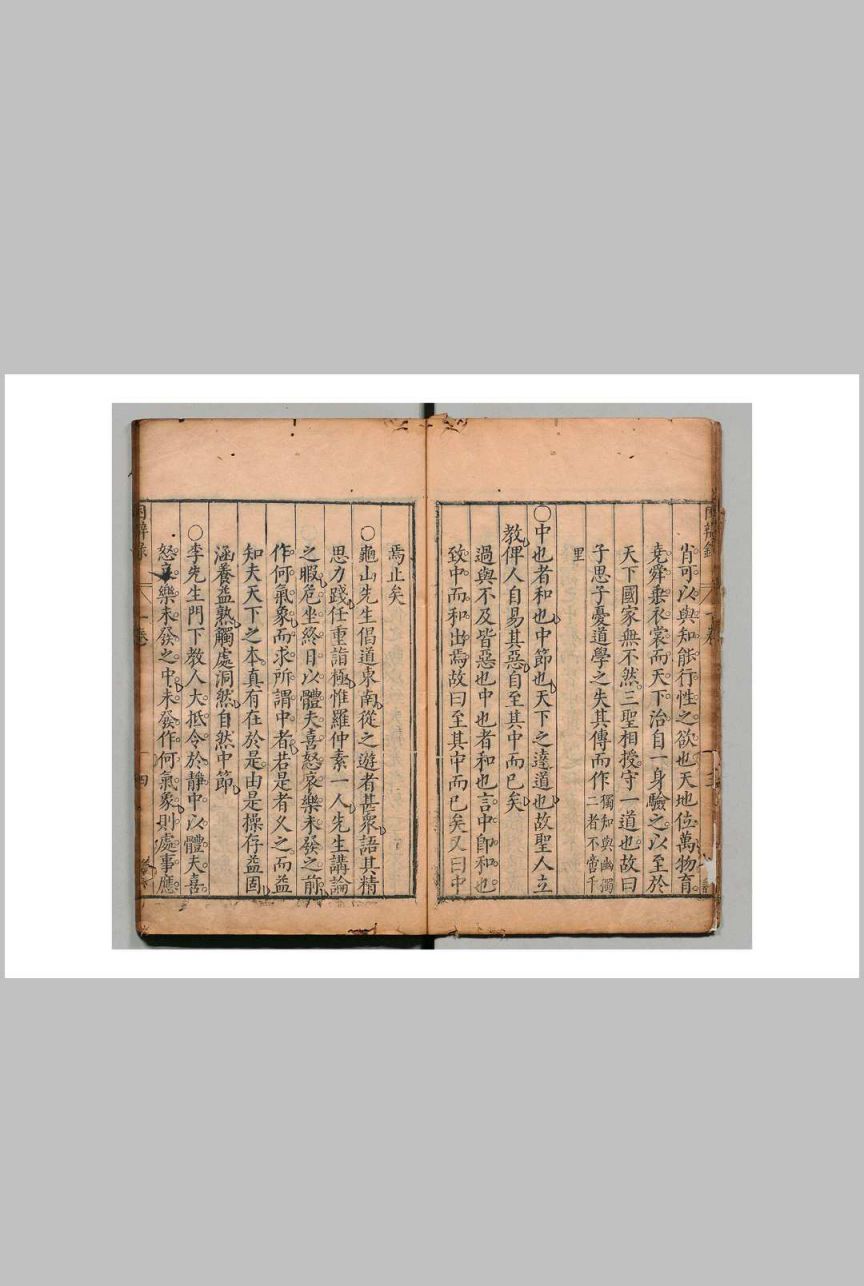 肖可以與知能行性之欲也天地位萬物育
堯舜垂衣裳而天下治自一身驗之以至於
天下國家無不然三聖相授守一道也故曰
子思子憂道學之失其傳而作獨知與幽獨二者不啻千
里
○中也者和也中節也天下之達道也故聖人立
教俾人自易其惡自至其中而已矣
過與不及皆惡也中也者和也言中即和也
致中而和出焉故曰至其中而已矣又曰中
焉止矣
○龜山先生倡道東南從之遊者甚衆語其精
思力踐任重詣極惟羅仲素一人先生講論
之暇危坐終日以體夫喜怒哀樂未發之前
作何氣象而求所謂中者若是者久之而益
知夫天下之本真有在於是由是操存益固
涵養益熟觸處洞然自然中節
○李先生門下教人大抵令於靜中以體夫喜
怒哀樂未發之中未發作何氣象則處事應
辯錄
一卷
四